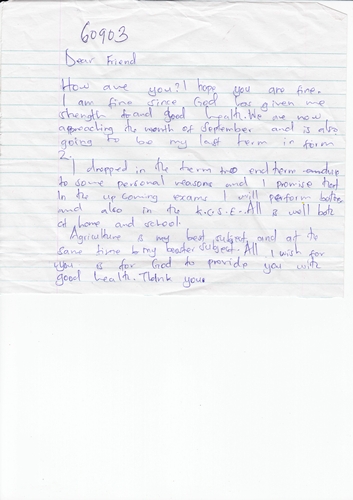 60903
Dear Friend
How are you? I hope you are fine.
I am fine since God has given me
strength and good health. We are now
approaching the month of September and is also
going to be my last term in form
2.
I dropped in the term two end term due
to some personal reasons and I promise that
In the up coming exams I will perform better
and also in the K.C.S.E. All is well both
at home and school.
Agriculture is my best subject and at the
same time my boster subject. All I wish for
you is for God to provide you with
good health. Thank you.